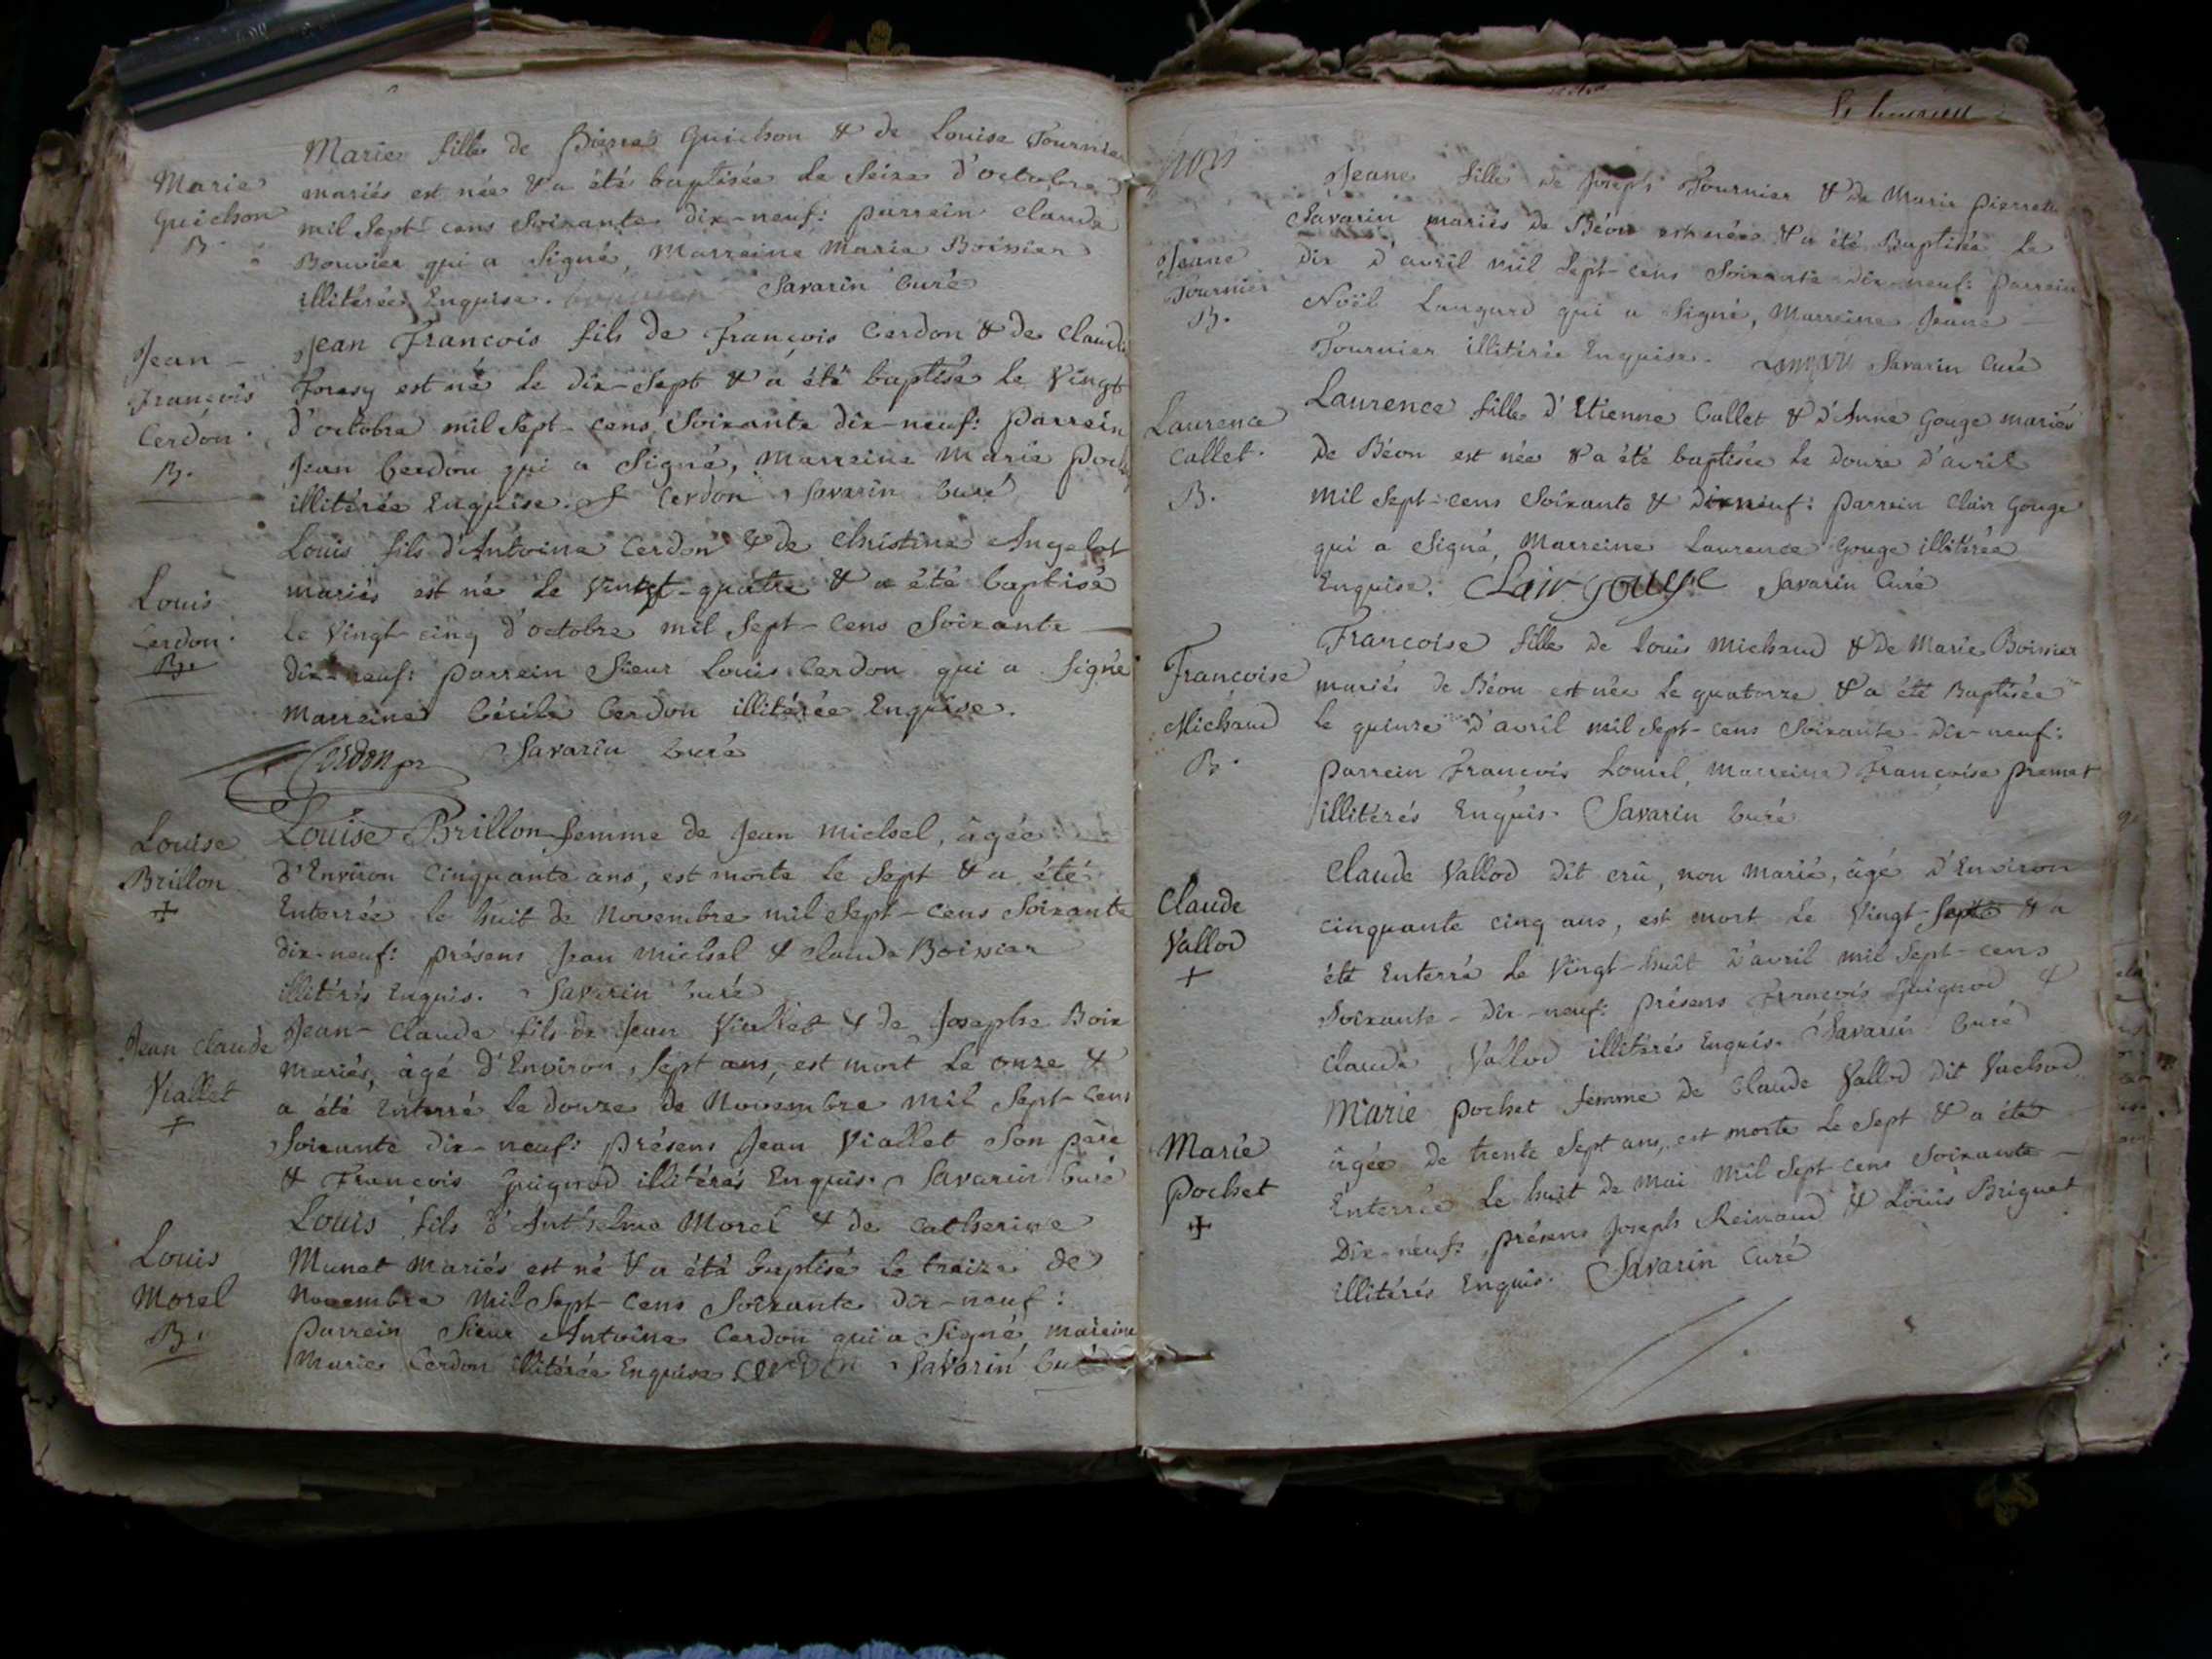 Marie fille de Pierre Guichon & de Louise Fournier
mariés est née & a été baptisée le Seize d'octobre
mil Sept-cens Soixante dix-neuf: parrein Claude
Bouvier qui a Signé, Marreine Marie Boissier
illitérée Enquise. Savarin Curé
Marie
Guichon
B.
Jean François fils de François Cerdon & de Claudi
est né le dix-Sept & a été baptisé le Vingt
d'octobre mil Sept-cens Soixante dix-neuf: parrein
Jean Cerdon qui a Signé, marreine Marie
illitérée Enquise. J Cerdon Savarin Curé
Jean -
François
Cerdon.
B.
Louis fils d'Antoine Cerdon & de Christine Angelot
mariés est né le Vingt-quatre & a été baptisé
le Vingt-cinq d'octobre mil Sept-cens Soixante
dix-neuf: parrein Sieur Louis Cerdon qui a Signé
Marreine Cécile Cerdon illitérée Enquise.
Cerdon Savarin Curé
Louis
Cerdon.
B.
Louise Brillon femme de Jean Michel, âgée
d'Environ Cinquante ans, est morte le Sept & a été
Enterrée le huit de Novembre mil Sept-Cens Soixante
dix-neuf: présens Jean Michel & Claude Boissier
illitérés Enquis. Savarin Curé
Louise
Brillon
+
Jean-Claude fils de Jean Viallet & de Josephe Boix
mariés, âgé d'Environ Sept ans, est mort le onze &
a été Enterré le douze de Novembre mil Sept-Cens
Soixante dix-neuf: présens Jean Viallet Son père
& François Guignod illitérés Enquis. Savarin Curé
Jean Claude
Viallet
+
Louis fils d'Anthelme Morel & de Catherine
Munet mariés est né & a été baptisé le treize de
Novembre mil Sept-Cens Soixante dix-neuf:
parrein Sieur Antoine Cerdon qui a Signé, mareine
Marie Cerdon illitérée Enquise Cerdon Savarin Curé
Louis
Morel
B.
Jeane fille de Joseph Fournier & de Marie Pierrette
Savarin mariés de Béon est née & a été Baptisée le
dix d'avril mil Sept-cens Soixante dix-neuf: parrein
Noël Laugard qui a Signé, Marreine Jeane
Fournier illitérée Enquise. Savarin Curé
Jeane
Fournier
B.
Laurence fille d'Etienne Callet & d'Anne Gouge mariés
de Béon est née & a été baptisée le douze d'avril
mil Sept-cens Soixante & dixneuf: parrein Clair Gouge
qui a Signé, Marreine Laurence Gouge illitérée
Enquise. Clair gouge Savarin Curé
Laurence
Callet.
B.
Francoise fille de Louis Michaud & de Marie Boissier
mariés de Béon est née le quatorze & a été Baptisée
le quinze d'avril mil Sept-cens Soixante-dix-neuf:
parrein François, Marreine Françoise premet
illitérés Enquis. Savarin Curé
Francoise
Michaud
B.
Claude Vallod dit crû, non marié, âgé d'Environ
cinquante cinq ans, est mort le Vingt-Sept & a
été Enterré le Vingt-huit d'avril mil Sept-cens
Soixante-dix-neuf: présens François Guignod &
Claude Vallod illitérés Enquis. Savarin Curé
Claude
Vallod
+
Marie pochet femme de Claude Vallod dit Vachod
âgée de trente Sept ans, est morte le Sept & a été
Enterrée le huit de Mai mil Sept-cens Soixante-
Dix-neuf: présens Joseph Reinaud & Louis Briguet
illitérés Enquis. Savarin Curé
Marie
Pochet
+